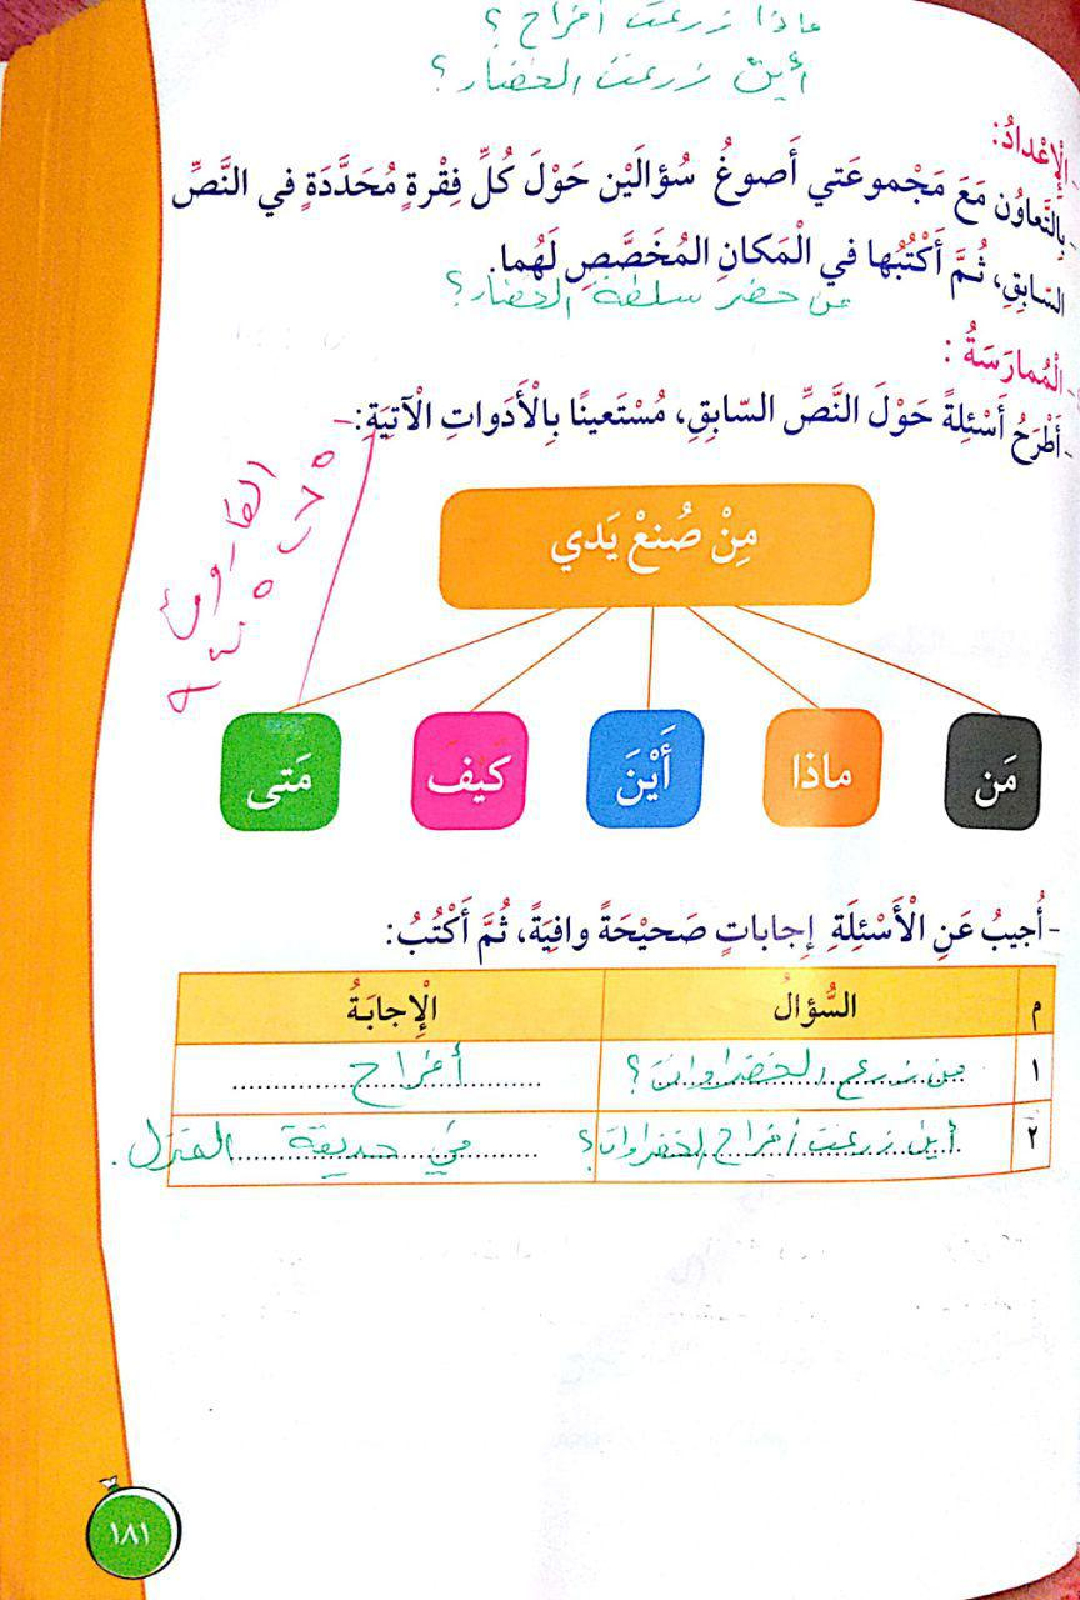 ماذا زرعت أفراح ؟
أين زرعت الخضار ؟
الْإِعْدادُ:
بِالتَّعاوُنِ مَعَ مَجْموعَتي أَصوغُ سُؤالَيْنِ حَوْلَ كُلِّ فِقْرةٍ مُحَدَّدَةٍ في النَّصِّ
السّابِقِ، ثُمَّ أَكْتُبُها في الْمَكانِ المُخَصَّصِ لَهُما.
من حضر سلطة الخضار؟
- الْمُمارَسَةُ :
- أَطْرَحُ أَسْئِلةً حَوْلَ النَّصِّ السّابِقِ، مُسْتَعينًا بِالْأَدَواتِ الْآتِيَةِ:-
مِنْ صُنعْ يَدي
مَن
ماذا
أَيْنَ
كَيفَ
مَتى
- أُجيبُ عَنِ الْأَسْئِلَةِ إِجاباتٍ صَحيْحَةً وافِيَةً، ثُمَّ أَكْتُبُ:
م السُّؤالُ الْإِجابَةُ
١ من زرع الخضراوات؟ أفراح
٢ أين زرعت أفراح الخضراوات؟ في حديقة المنزل.
١٨١